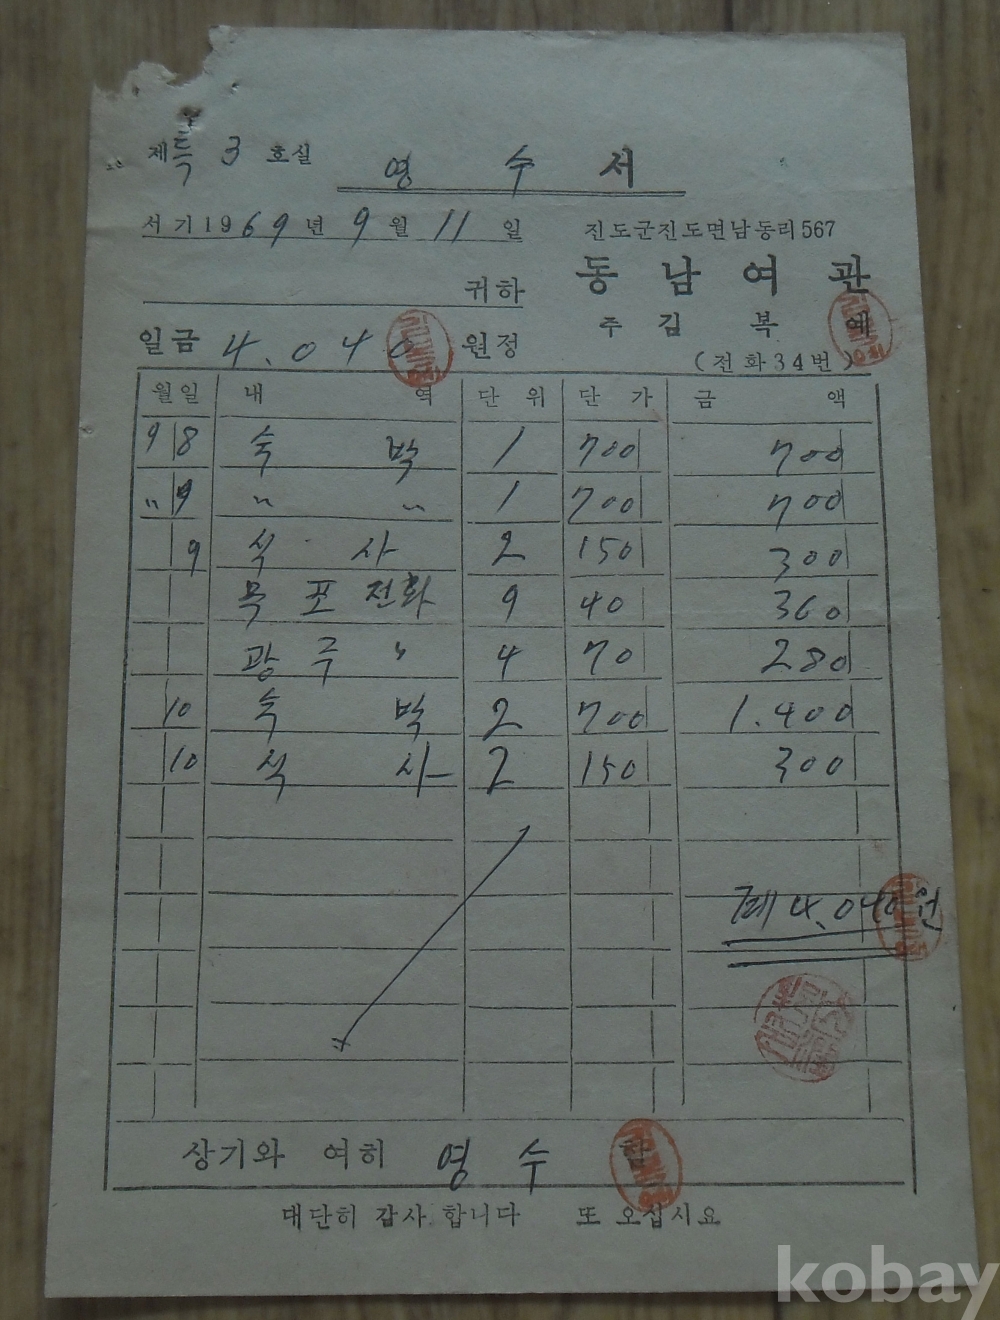 제특 3 호실
영 수 서
서기 1969년 9월 11일
진도군진도면남동리567
동남여관
귀하
주 길 복 예
일금 4.040 원정
(전화34번)
월일 내역 단위 단가 금액
9 8 숙박 1 700 700
〃 9 〃 〃 1 700 700
9 식사 2 150 300
목포전화 9 40 360
광주 〃 4 70 280
10 숙박 2 700 1.400
10 식사 2 150 300
계 4.040원
상기와 여히 영수함
대단히 감사합니다 또 오십시요
kobay